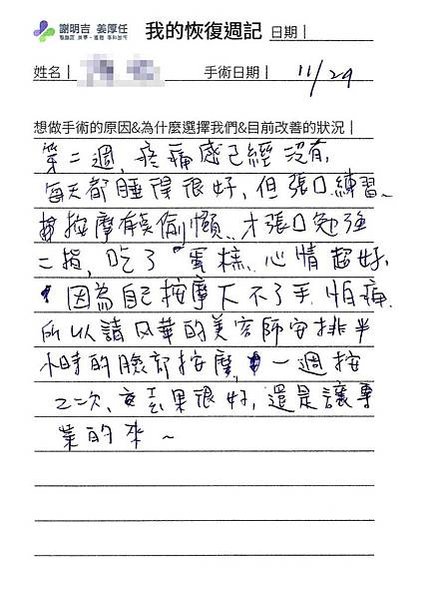 謝明吉 姜厚任 我的恢復週記 日期|
姓名| 手術日期| 11/29
想做手術的原因&為什麼選擇我們&目前改善的狀況|
第二週,疼痛感已經沒有,
每天都睡得很好,但張口練習、
按摩有莫偷懶、才張口勉強
二指,吃了蛋糕、心情超好,
因為自己按摩下不了手,怕痛、
所以請風華的美容師安排半
小時的臉部按摩,一週按
二次、效果很好,還是讓專
業的來~